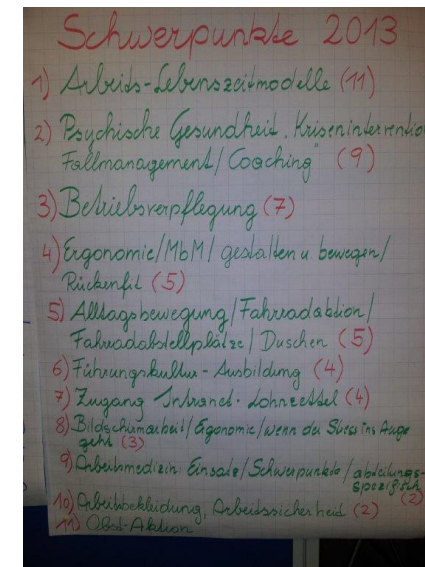 Schwerpunkte 2013
1) Arbeits-Lebenszeitmodelle (11)
2) Psychische Gesundheit "Kriseninterventio
Fallmanagement/Coaching" (9)
3) Betriebsverpflegung (7)
4) Ergonomie/MbM/gestalten u. bewegen/
Rückenfit (5)
5) Alltagsbewegung/Fahrradaktion/
Fahrradabstellplätze/Duschen (5)
6) Führungskultur-Ausbildung (4)
7) Zugang Intranet-Lohnzettel (4)
8) Bildschirmarbeit/Ergonomie/wenn der Stress ins Auge
geht (3)
9) Arbeitsmedizin: Einsatz/Schwerpunkte/abteilungs-
spezifisch (2)
10) Arbeitsbekleidung, Arbeitssicherheit (2)
11) Obst-Aktion